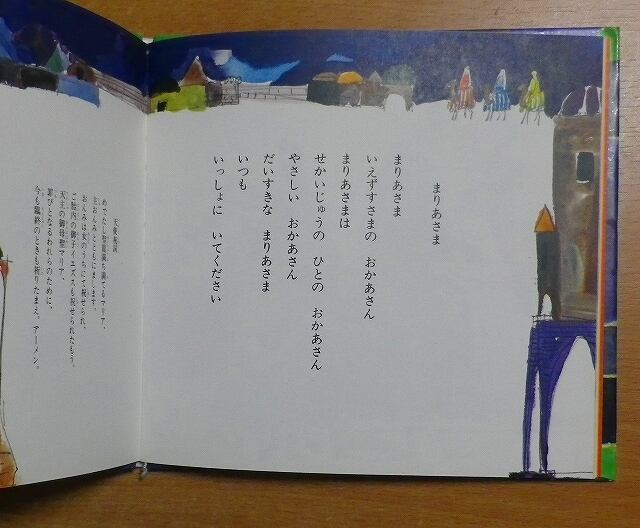 まりあさま
まりあさま
いえずすさまの おかあさん
まりあさまは
せかいじゅうの ひとの おかあさん
やさしい おかあさん
だいすきな まりあさま
いつも
いっしょに いてください
天使祝詞
めでたし聖寵満ち満てるマリア、
主おんみとともにまします。
おんみは女のうちにて祝せられ、
ご胎内の御子イエズスも祝せられたもう。
天主の御母聖マリア、
罪びとなるわれらのために、
今も臨終のときも祈りたまえ。アーメン。